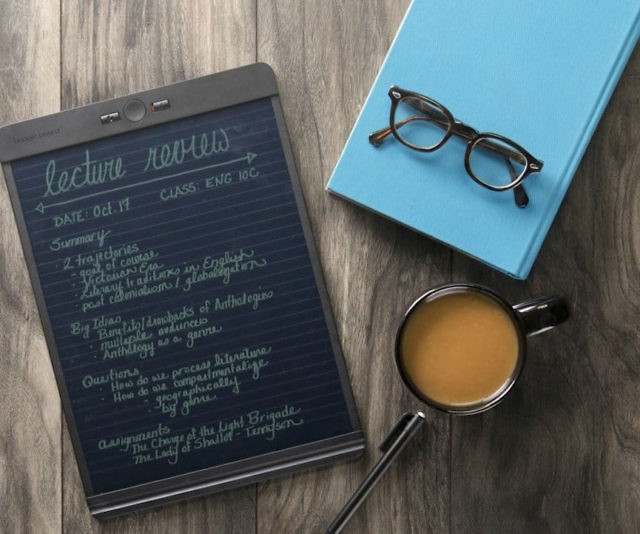 boogie board
lecture review
DATE: Oct 17 CLASS: ENG 10C
Summary
· 2 trajectories
· goal of course
· Victorian Era
· Literary traditions in English
· post colonialism / globalization
Big Ideas
· Benefits/drawbacks of Anthologies
· multiple audiences
· Anthology as a genre
Questions
· How do we process literature
· How do we compartmentalize
· geographically
· by genre
Assignments
The Charge of the Light Brigade
The Lady of Shallot - Tennyson